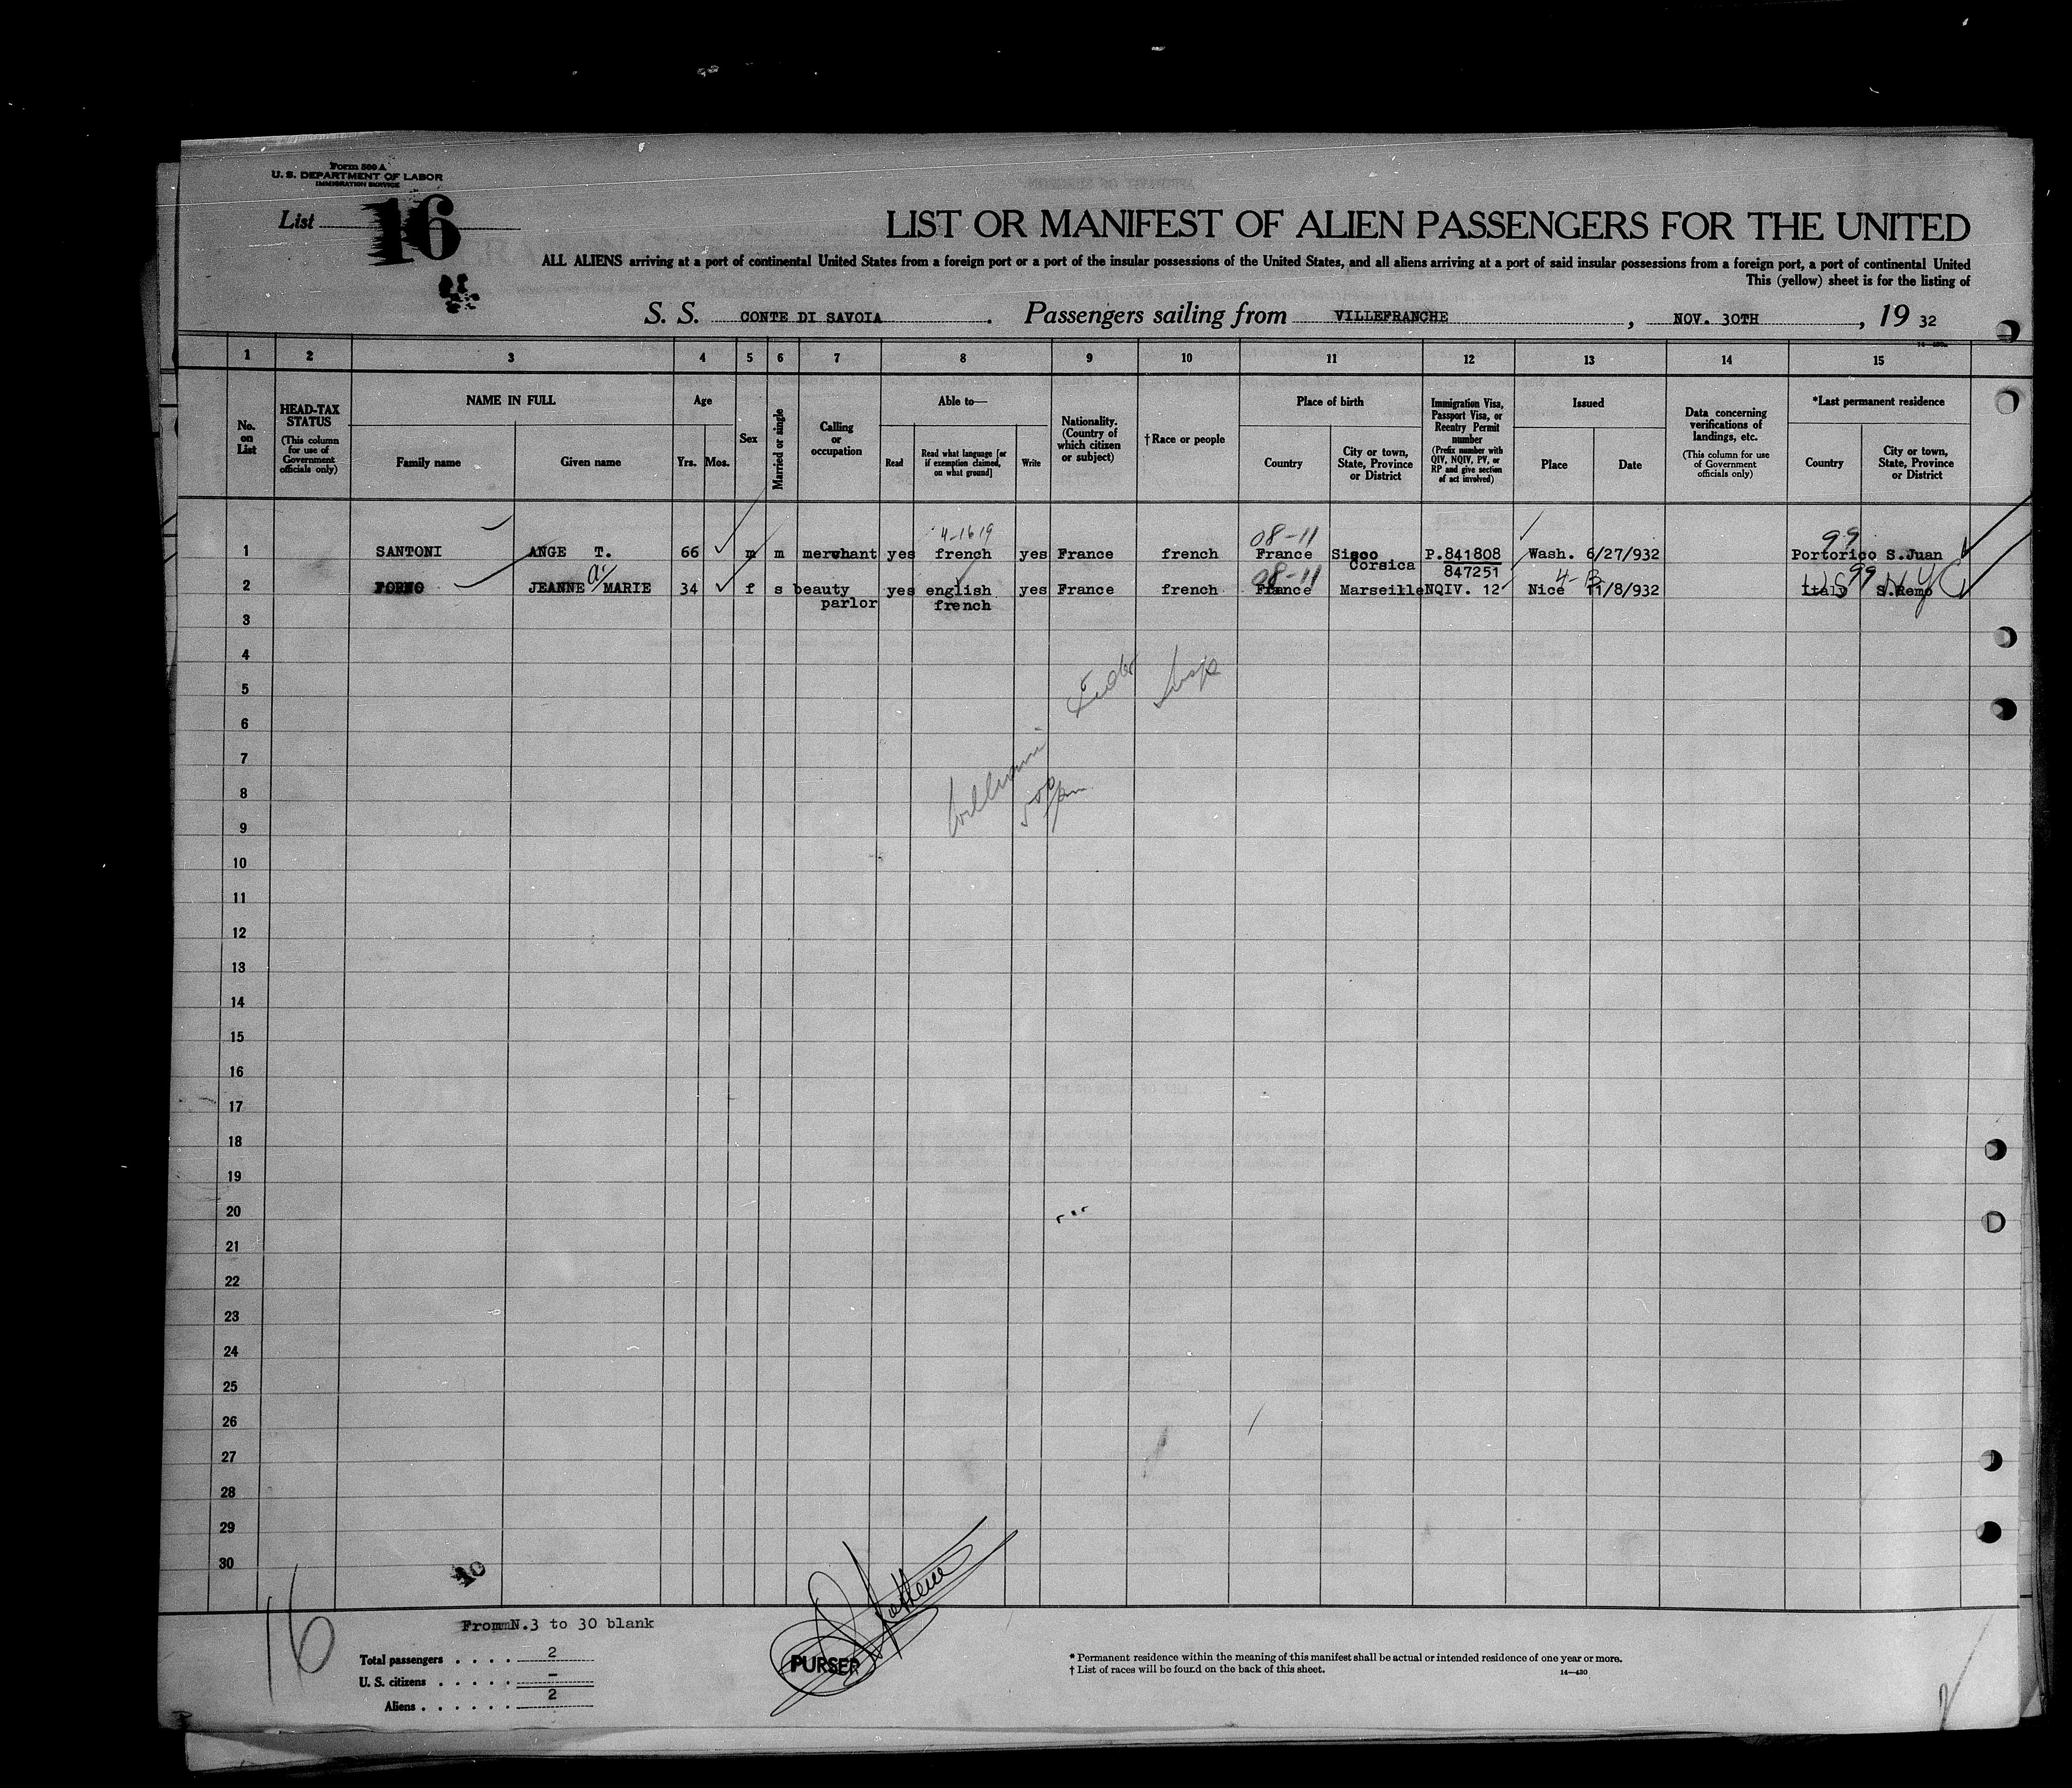 Form 500 A
U. S. DEPARTMENT OF LABOR
IMMIGRATION SERVICE
List 16
LIST OR MANIFEST OF ALIEN PASSENGERS FOR THE UNITED
ALL ALIENS arriving at a port of continental United States from a foreign port or a port of the insular possessions of the United States, and all aliens arriving at a port of said insular possessions from a foreign port, a port of continental United
This (yellow) sheet is for the listing of
S. S. CONTE DI SAVOIA. Passengers sailing from VILLEFRANCHE, NOV. 30TH, 19 32
1 2 3 4 5 6 7 8 9 10 11 12 13 14 15
No. on List
HEAD-TAX STATUS
(This column for use of Government officials only)
NAME IN FULL
Family name
Given name
Age
Yrs. Mos.
Sex
Married or single
Calling or occupation
Able to—
Read
Read what language [or if exemption claimed, on what ground]
Write
Nationality. (Country of which citizen or subject)
†Race or people
Place of birth
Country
City or town, State, Province or District
Immigration Visa, Passport Visa, or Reentry Permit number
(Prefix number with QIV, NQIV, PV, or RP and give section of act involved)
Issued
Place
Date
Data concerning verifications of landings, etc.
(This column for use of Government officials only)
*Last permanent residence
Country
City or town, State, Province or District
4-1619 08-11 99
1 SANTONI ANGE T. 66 m m merchant yes french yes France french France Sisco Corsica P.841808 847251 Wash. 6/27/932 Portorico S.Juan
a. 08-11 99
2 FORNO JEANNE MARIE 34 f s beauty parlor yes english french yes France french France Marseille NQIV. 12 Nice 11/8/932 Italy S.Remo
US NYC
3
4
5
6
7
8
9
10
11
12
13
14
15
16
17
18
19
20
21
22
23
24
25
26
27
28
29
30
16
From N.3 to 30 blank
Total passengers . . . . 2
U. S. citizens . . . . . –
Aliens . . . . . . 2
PURSER
* Permanent residence within the meaning of this manifest shall be actual or intended residence of one year or more.
† List of races will be found on the back of this sheet.
14—430